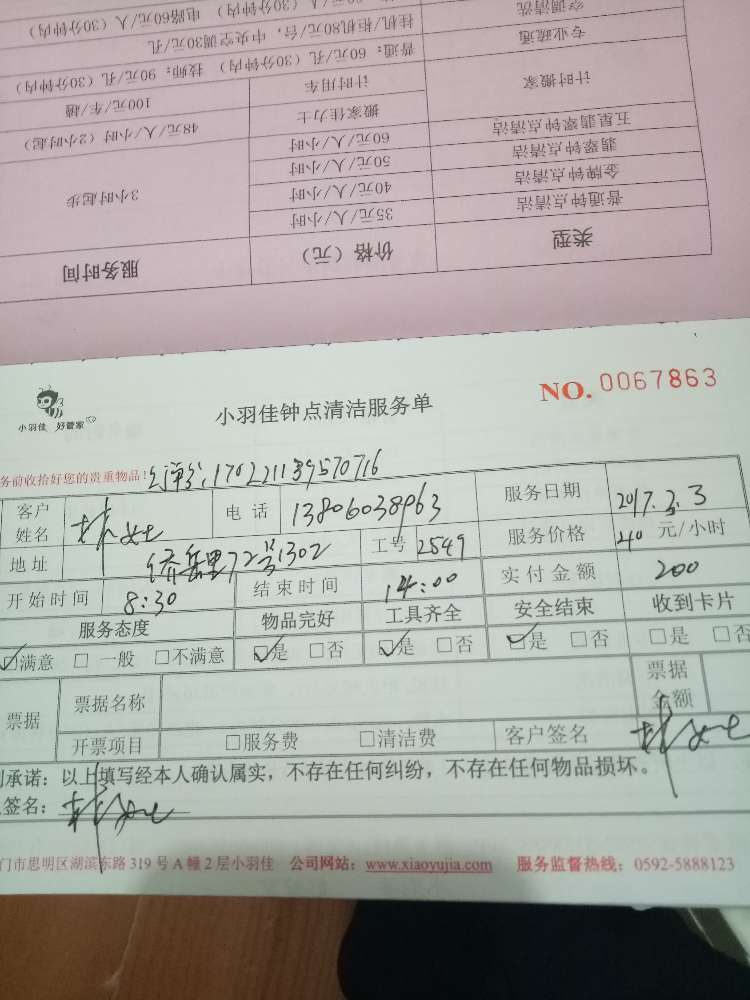 空调清洗
挂机/柜机80元/台，中央空调30元/孔
专业疏通
普通：60元/孔（30分钟内） 技师：90元/孔（30分钟内）
计时搬家
计时用车
100元/车/趟
搬家佳力士
48元/人/小时（2小时起）
五星翡翠钟点清洁
60元/人/小时
翡翠钟点清洁
50元/人/小时
金牌钟点清洁
40元/人/小时
3小时起步
普通钟点清洁
35元/人/小时
类型
价格（元）
服务时间
小羽佳 好管家
小羽佳钟点清洁服务单
NO. 0067863
务前收拾好您的贵重物品！
170221139570716
客户姓名
林女士
电 话
13806038963
服务日期
2017.3.3
地 址
侨岳里72号1302
工号
2549
服务价格
40 元/小时
开始时间
8:30
结束时间
14:00
实付金额
200
服务态度
物品完好
工具齐全
安全结束
收到卡片
☑满意 □ 一般 □不满意
☑是 □否
☑是 □否
☑是 □否
□是 □否
票据
票据名称
票据金额
开票项目
□服务费
□清洁费
客户签名
林女士
承诺：以上填写经本人确认属实，不存在任何纠纷，不存在任何物品损坏。
签名：林女士
门市思明区湖滨东路 319 号 A 幢 2 层小羽佳 公司网站：www.xiaoyujia.com 服务监督热线：0592-5888123